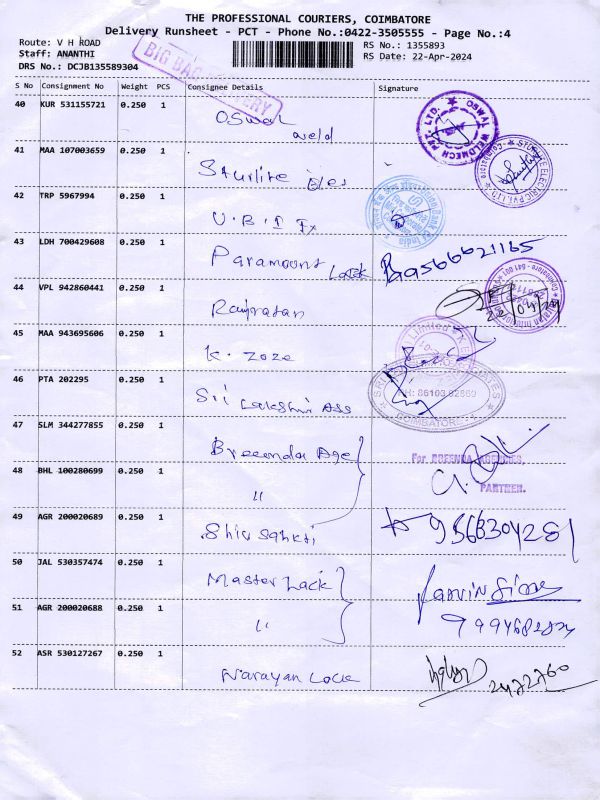 THE PROFESSIONAL COURIERS, COIMBATORE
Delivery Runsheet - PCT - Phone No.:0422-3505555 - Page No.:4
Route: V H ROAD
Staff: ANANTHI
DRS No.: DCJB135589304
RS No.: 1355893
RS Date: 22-Apr-2024
S No Consignment No Weight PCS Consignee Details Signature
40 KUR 531155721 0.250 1 Oswal weld
OSWAL WELDMECH PVT. LTD.
41 MAA 107003659 0.250 1 Sturlite
42 TRP 5967994 0.250 1 U.B.I
43 LDH 700429608 0.250 1 Paramount Lock 9566621165
44 VPL 942860441 0.250 1 Rajratan
45 MAA 943695606 0.250 1 K. Zoze
46 PTA 202295 0.250 1 Sri Lakshmi Ass
PH: 86103 92860
COIMBATORE
47 SLM 344277855 0.250 1 Breeenda Age
For BREENDA AGENCIES,
PARTNER.
48 BHL 100280699 0.250 1 "
49 AGR 200020689 0.250 1 Shiv Sahkti
50 JAL 530357474 0.250 1 Master Lock
51 AGR 200020688 0.250 1 "
52 ASR 530127267 0.250 1 Narayan Lock 2472760